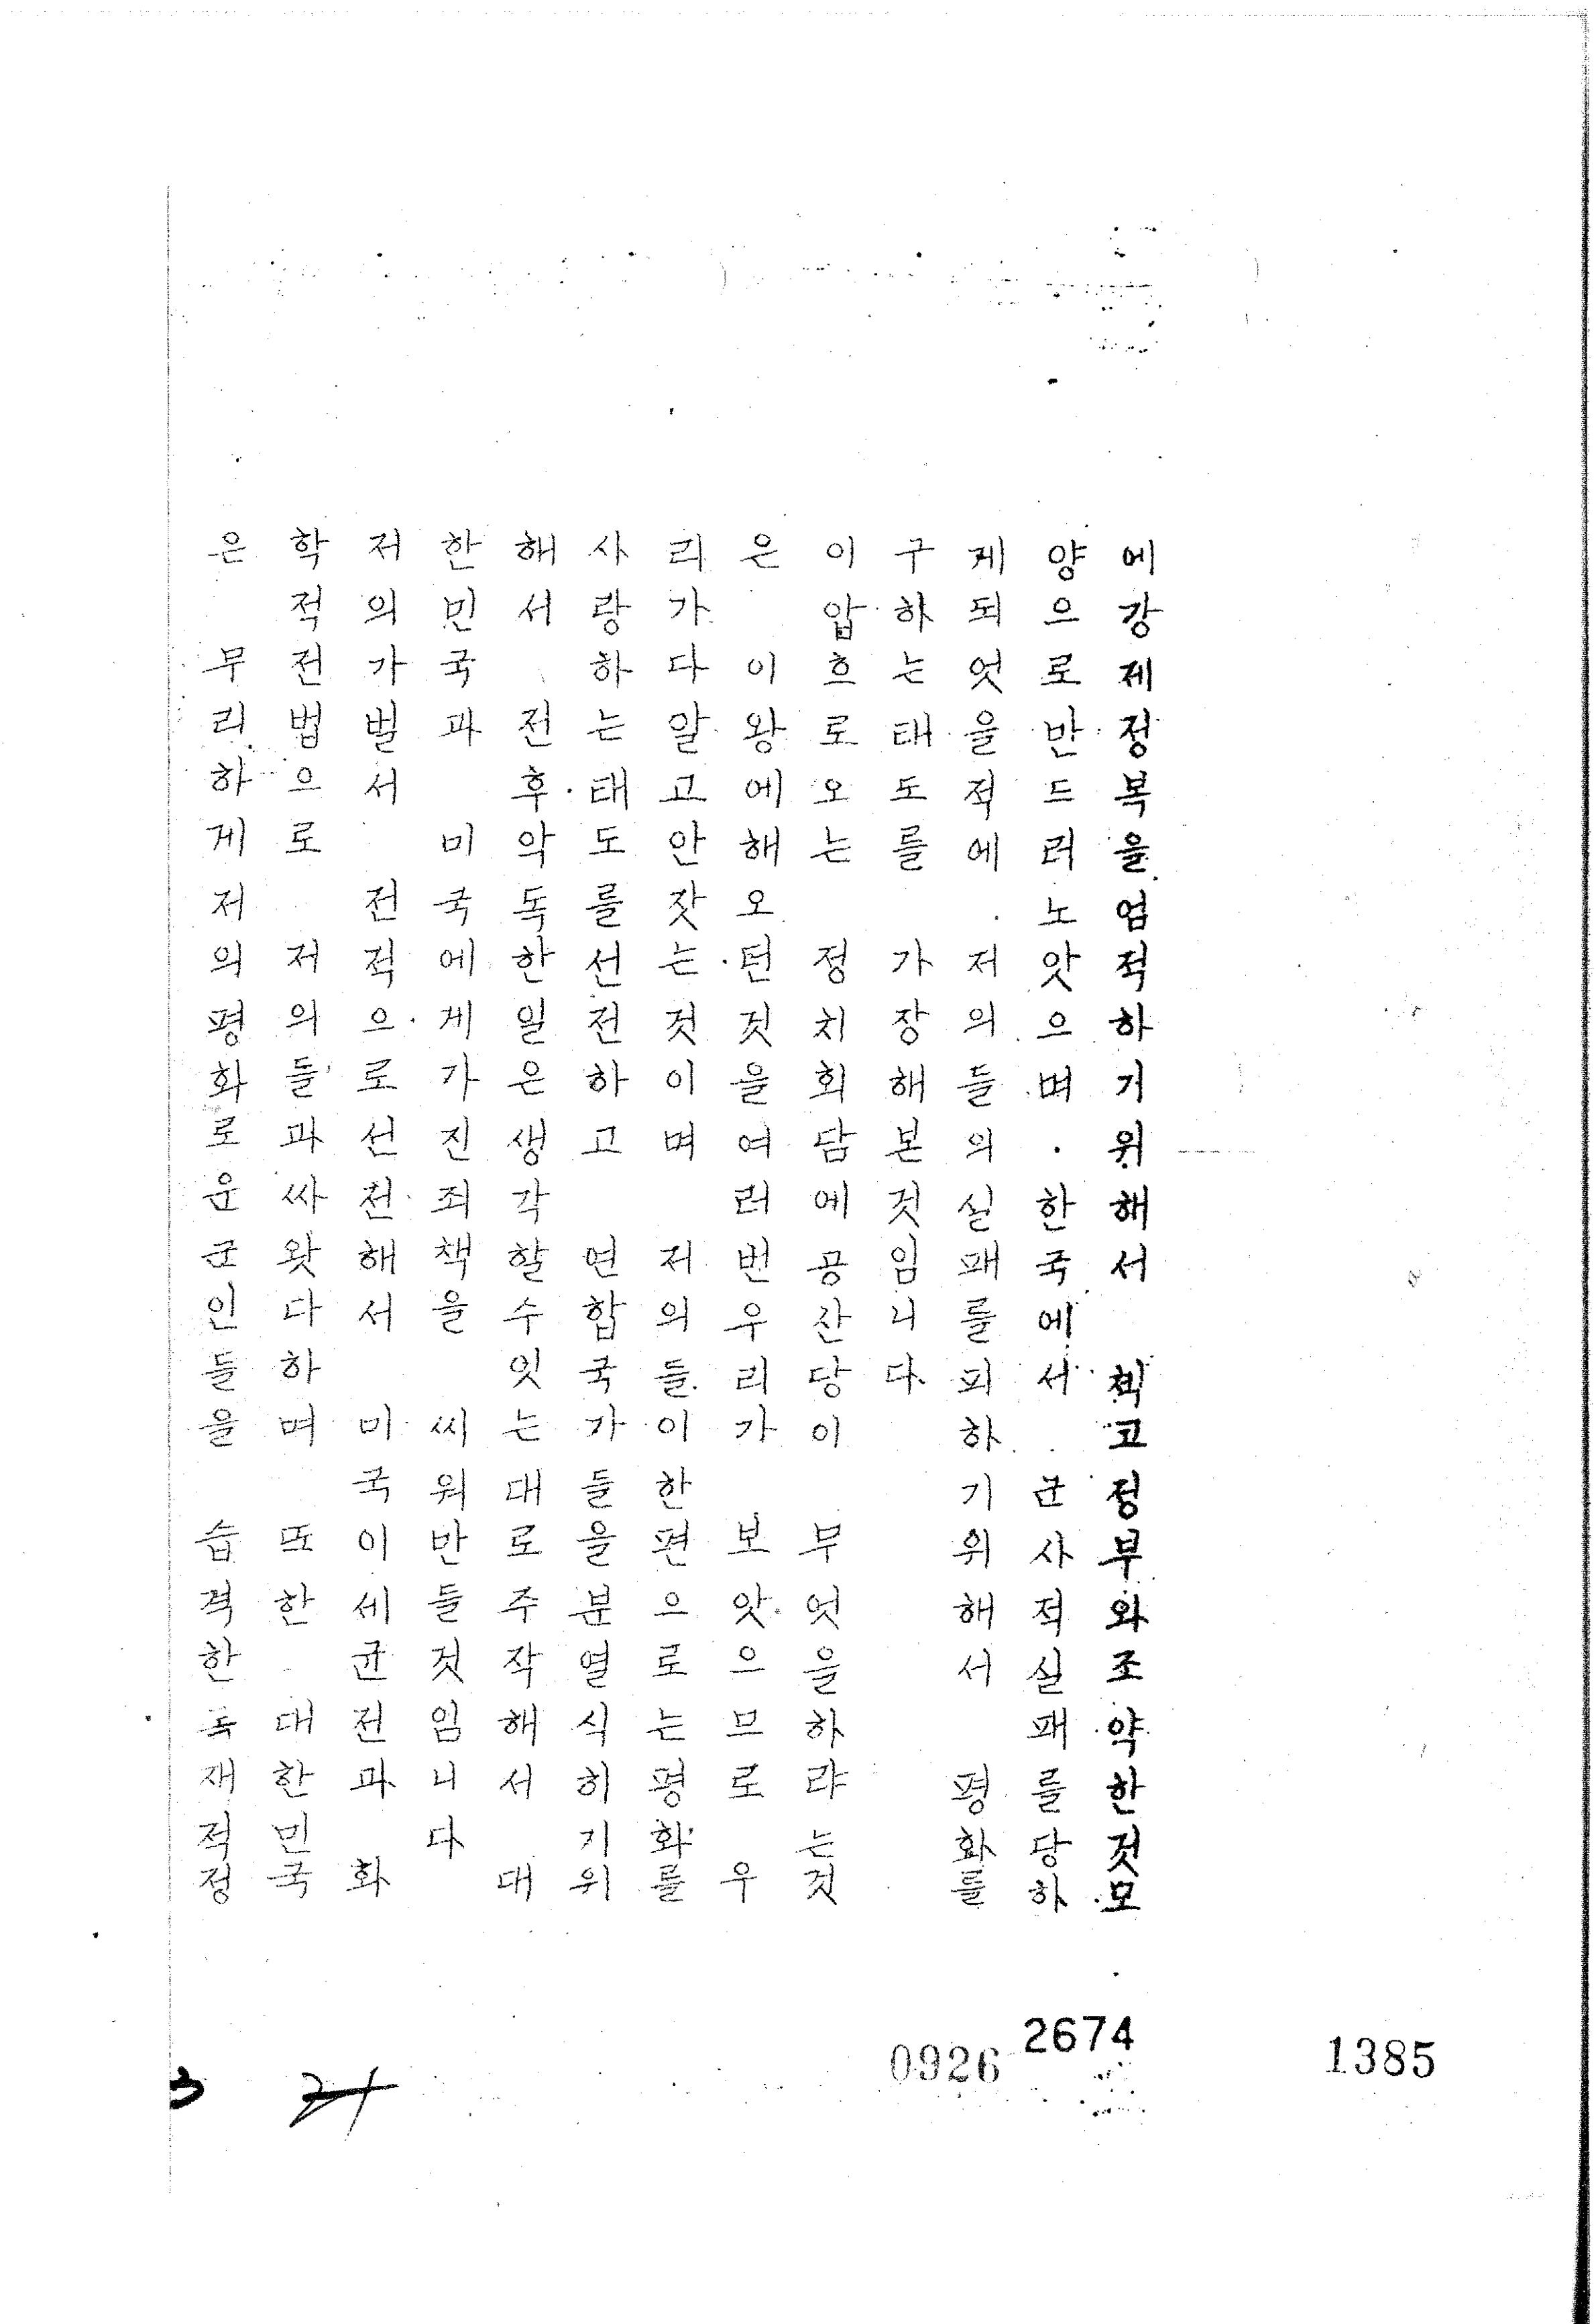 에강제정복을엄적하기위해서 첵고정부와조약한것모
양으로반드러노앗으며·한국에서 군사적실패를당하
게되엇을적에 저의들의실패를피하기위해서 평화를
구하는태도를 가장해본것임니다
이압흐로오는 정치회담에공산당이 무엇을하랴는것
은 이왕에해오던것을여러번우리가 보앗으므로 우
리가다알고안잣는것이며 저의들이한편으로는평화를
사랑하는태도를선전하고 연합국가들을분열식히기위
해서 전후악독한일은생각할수잇는대로주작해서 대
한민국과 미국에게가진죄책을 씨워반들것임니다
저의가벌서 전적으로선전해서 미국이세균전과 화
학적전법으로 저의들과싸왓다하며 또한 대한민국
은 무리하게저의평화로운군인들을 습격한독재적정
2674
0926
1385
3
24